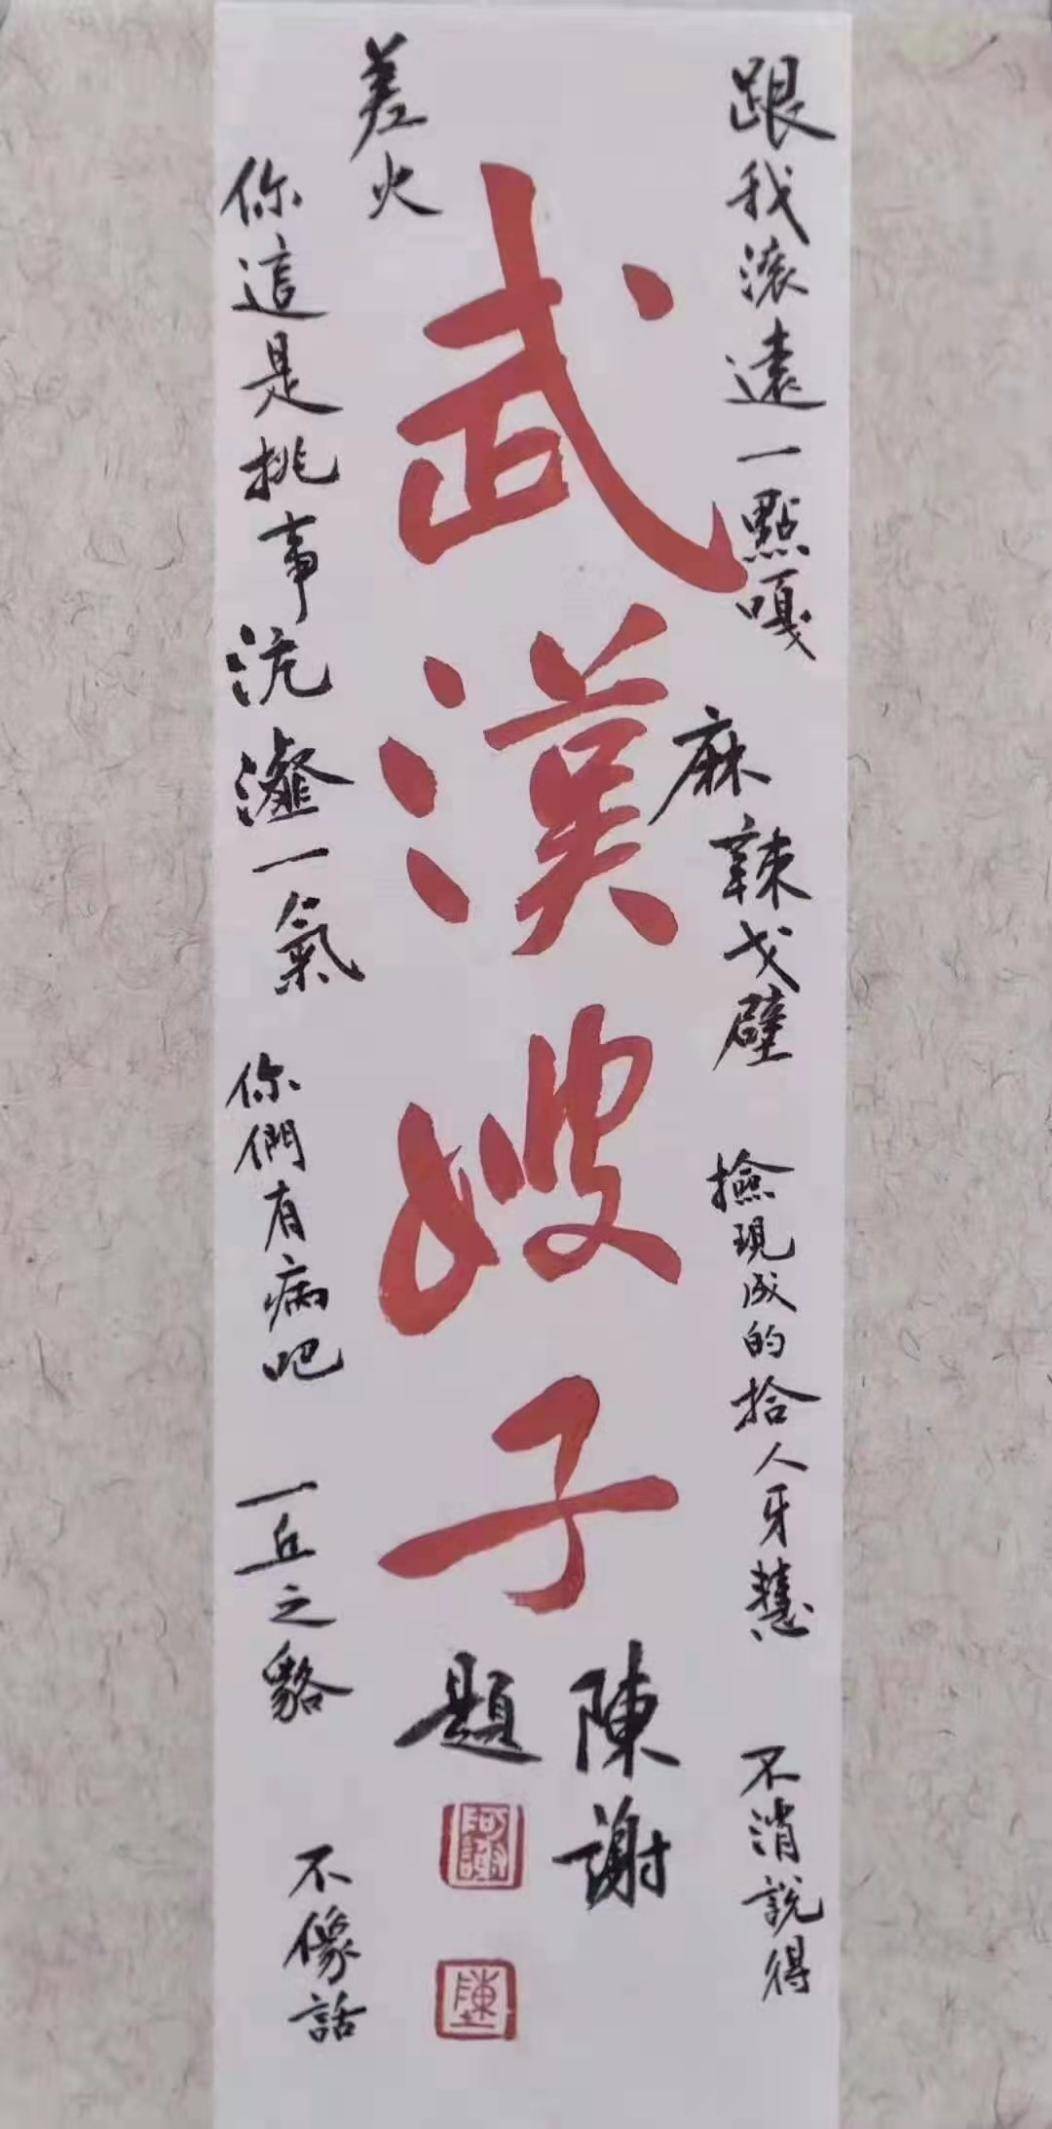 跟我滚遠一點嘎
麻辣戈壁
撿現成的拾人牙慧
不消說得
武漢嫂子
陳謝
題
阿謝
陳
差火
你這是挑事沆瀣一氣
你們有病吧
一丘之貉
不像話